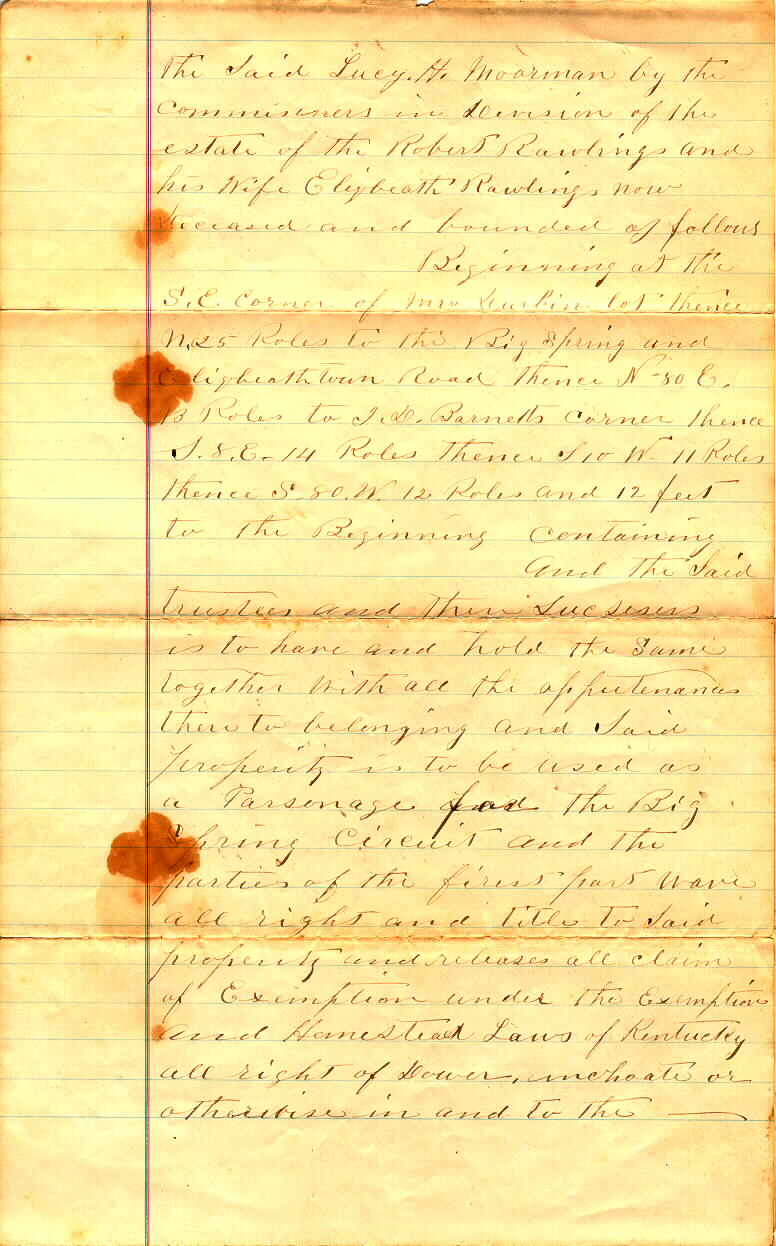 the Said Lucy. H. Moorman by the
commisiners in Devision of the
estate of the Robert Rawlings and
his Wife Eligbeath Rawlings now
deceased and bounded as follows
Beginning at the
S. E. Corner of Mrs Durbin lot thence
N. 25 Roles to the Big Spring and
Eligbeathtown Road thence N-80 E.
13 Roles to J. D. Barnetts Corner thence
S. 8. E- 14 Roles thence S 10 W- 11 Roles
thence S. 80. W. 12 Roles and 12 feet
to the Beginning containing
and the Said
trustees and their Sucsesers
is to have and hold the Same
together with all the appertenances
there to belonging and Said
properity is to be used as
a Parsonage for the Big
Spring Circuit and the
parties of the first part wave
all right and title to Said
properity and releases all claim
of Exemption under the Exemption
and Homestead Laws of Kentucky
all right of Dower, inchoate or
otherwise in and to the